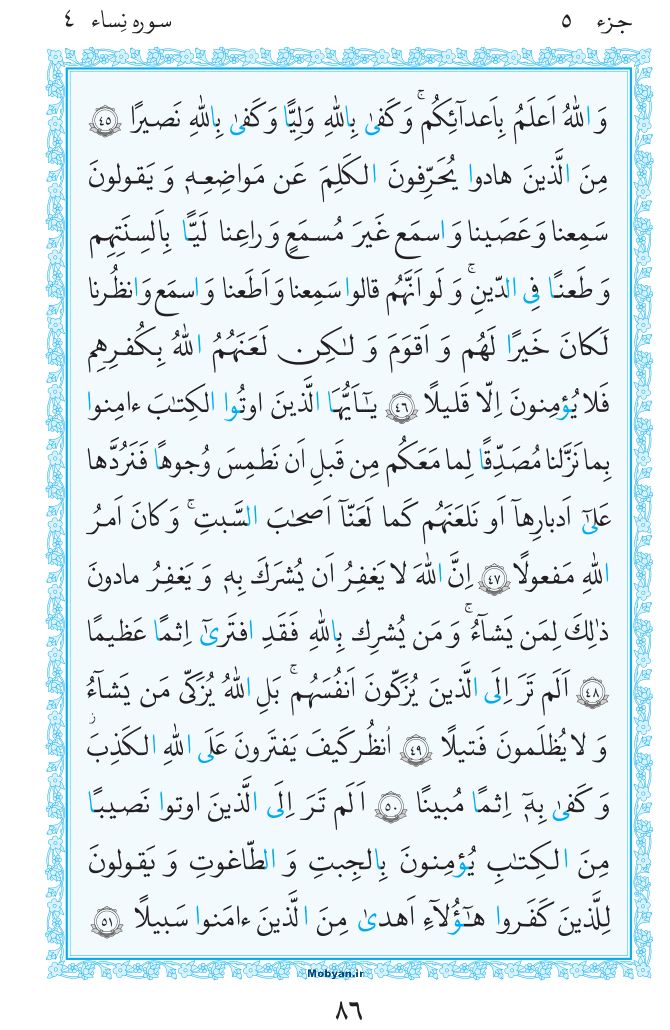 جزء ٥
سوره نِساء ٤
وَ اللّٰهُ اَعلَمُ بِاَعدآئِكُم ۚ وَ كَفىٰ بِاللّٰهِ وَلِيًّا وَ كَفىٰ بِاللّٰهِ نَصيرًا ﴿٤٥﴾
مِنَ الَّذينَ هادوا يُحَرِّفونَ الكَلِمَ عَن مَواضِعِهٖ وَ يَقولونَ
سَمِعنا وَ عَصَينا وَ اسمَع غَيرَ مُسمَعٍ وَ راعِنا لَيًّا بِاَلسِنَتِهِم
وَ طَعنًا فِي الدّينِ ۚ وَ لَو اَنَّهُم قالوا سَمِعنا وَ اَطَعنا وَ اسمَع وَ انظُرنا
لَكانَ خَيرًا لَهُم وَ اَقوَمَ وَ لـٰكِن لَعَنَهُمُ اللّٰهُ بِكُفرِهِم
فَلا يُؤمِنونَ اِلّا قَليلًا ﴿٤٦﴾ يـٰٓاَيُّهَا الَّذينَ اوتُوا الكِتـٰبَ ءامِنوا
بِما نَزَّلنا مُصَدِّقًا لِما مَعَكُم مِن قَبلِ اَن نَطمِسَ وُجوهًا فَنَرُدَّها
عَلىٰٓ اَدبارِهآ اَو نَلعَنَهُم كَما لَعَنّآ اَصحـٰبَ السَّبتِ ۚ وَ كانَ اَمرُ
اللّٰهِ مَفعولًا ﴿٤٧﴾ اِنَّ اللّٰهَ لا يَغفِرُ اَن يُشرَكَ بِهٖ وَ يَغفِرُ مادونَ
ذٰلِكَ لِمَن يَشآءُ ۚ وَ مَن يُشرِك بِاللّٰهِ فَقَدِ افتَرىٰٓ اِثمًا عَظيمًا
﴿٤٨﴾ اَلَم تَرَ اِلَى الَّذينَ يُزَكّونَ اَنفُسَهُم ۚ بَلِ اللّٰهُ يُزَكّى مَن يَشآءُ
وَ لا يُظلَمونَ فَتيلًا ﴿٤٩﴾ اُنظُر كَيفَ يَفتَرونَ عَلَى اللّٰهِ الكَذِبَ ۖ
وَ كَفىٰ بِهٖٓ اِثمًا مُبينًا ﴿٥٠﴾ اَلَم تَرَ اِلَى الَّذينَ اوتوا نَصيبًا
مِنَ الكِتـٰبِ يُؤمِنونَ بِالجِبتِ وَ الطّاغوتِ وَ يَقولونَ
لِلَّذينَ كَفَروا هـٰٓؤُلآءِ اَهدىٰ مِنَ الَّذينَ ءامَنوا سَبيلًا ﴿٥١﴾
Mobyan.ir
٨٦